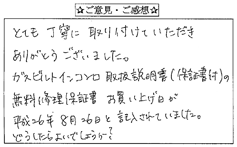 ☆ご意見・ご感想☆
とても丁寧に取り付けていただき
ありがとうございました。
ガスビルトインコンロ取扱説明書(保証書付)の
無料修理保証書 お買い上げ日が
平成26年8月26日と記入されていました。
どうしたらよいでしょうか?